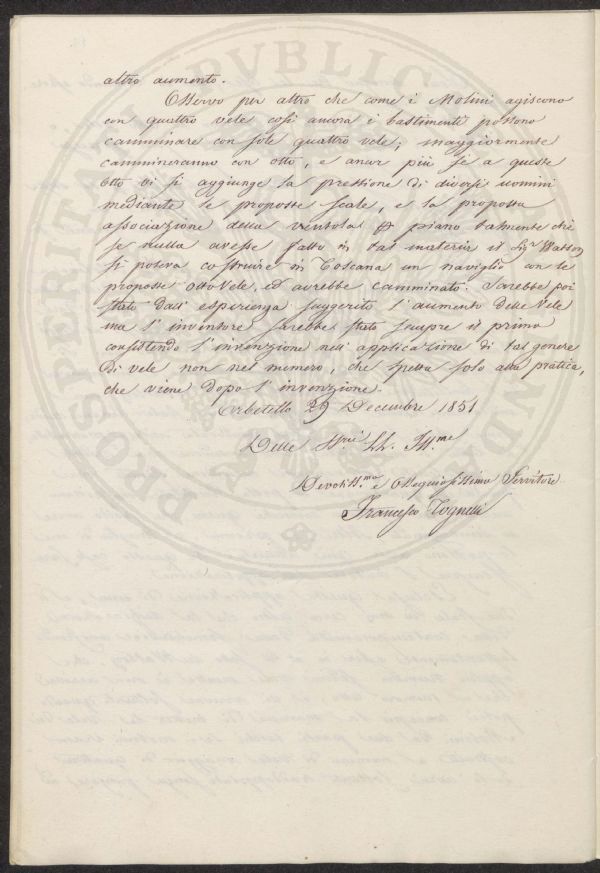 altro aumento.
Osservo per altro che come i Molini agiscono
con quattro vele così ancora i bastimenti possono
camminare con sole quattro vele; maggiormente
cammineranno con otto, e ancor più se a queste
otto vi si aggiunge la pressione di diversi uomini
mediante le proposte scale, e la proposta
associazione della ventola al piano talmente chè
se nulla avesse fatto in tal materia il Sigr Watson
si poteva costruire in Toscana un naviglio con le
proposte otto Vele, ed avrebbe camminato. Sarebbe poi
stato dall' esperienza suggerito l'aumento delle Vele
ma l'inventore sarebbe stato sempre il primo
consistendo l'invenzione nell' applicazione di tal genere
di vele non nel numero, che spetta solo alla pratica,
che viene dopo l'invenzione.
Orbetello 29 Decembre 1851
Delle SS.rie LL. Ill.me
Devotiss.mo e Ossequiosissimo Servitore
Francesco Tognetti
PROSPERITATI PVBLICAE